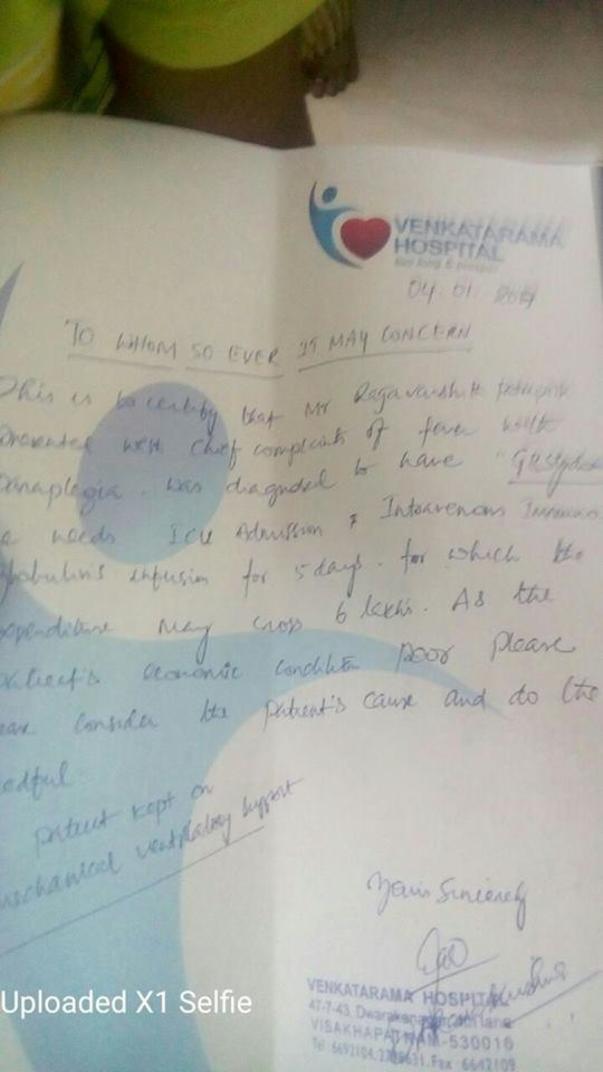 VENKATARAMA
HOSPITAL
04.01.
TO WHOM SO EVER IT MAY CONCERN
This is to certify that Mr
Presented with chief complaints of fever with
was diagnosed to have "
needs ICU Admission & Intravenous Immuno
globulin's infusion for 5 days. for which the
expenditure may cross 6 lakhs. As the
patient's economic condition poor please
consider the patient's cause and do the
needful
patient kept on
mechanical ventilatory support
Yours Sincerely
VENKATARAMA HOSPITAL
47-7-43,
VISAKHAPATNAM-530016
Fax: 6642109
Uploaded X1 Selfie